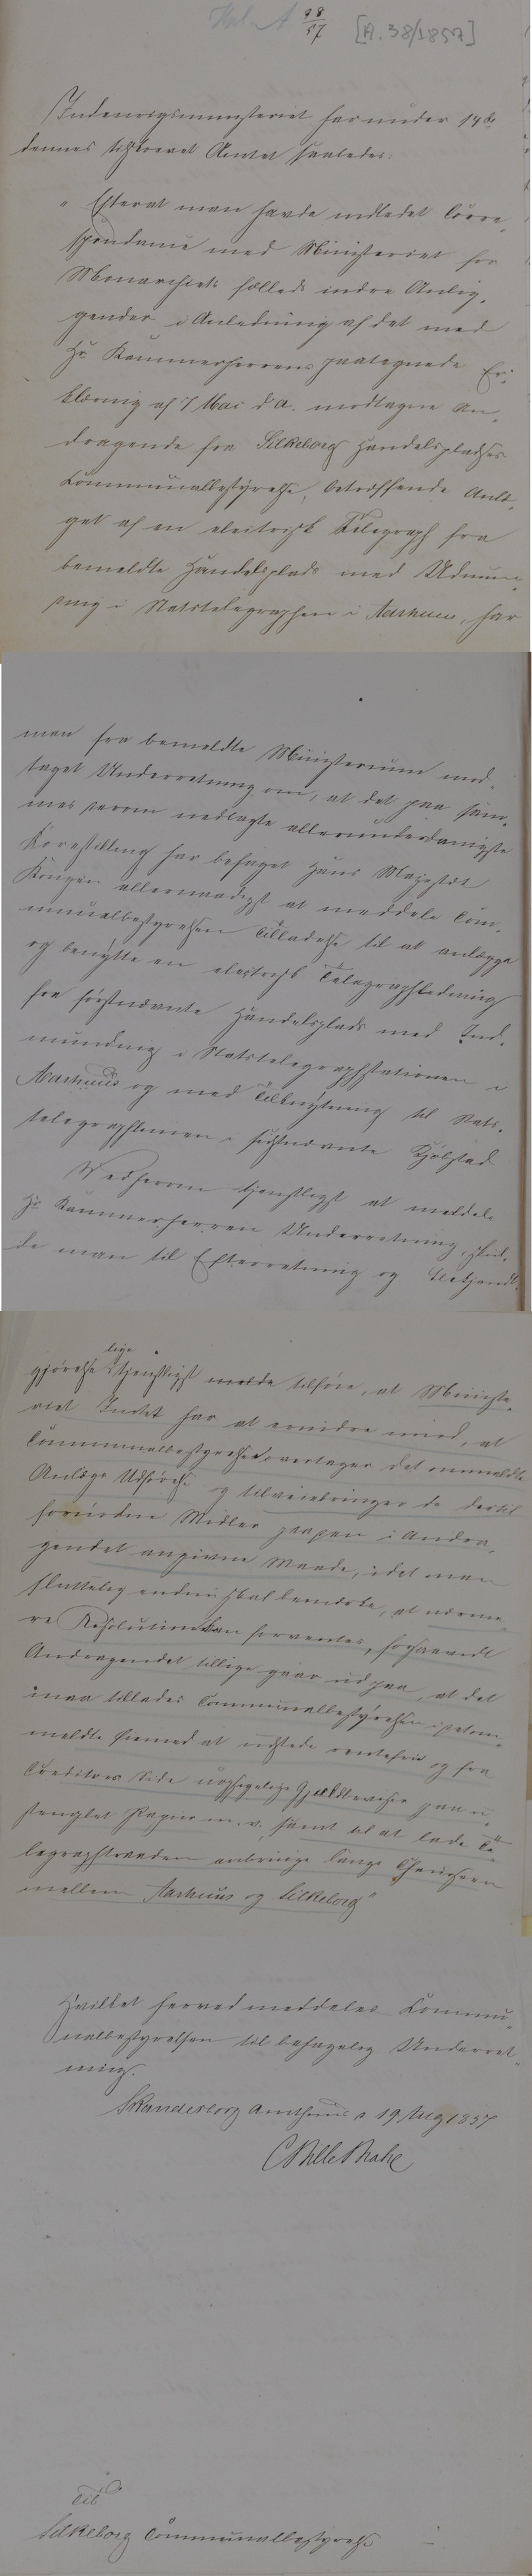 38
57
[A.38/1857]
Indenrigsministeriet har under 14de
dennes tilskrevet Amtet saaledes:
"Efterat man havde indledet Corre-
spondance med Ministeriet for
Monarchiets fælleds indre Anlig-
gender i Anledning af det med
Hr Kammerherrens paategnede Er-
klæring af 7 Mai d.A. modtagne An-
dragende fra Silkeborg Handelsplads
Communalbestyrelse, betræffende Anlæ-
get af en electrisk Telegraph fra
bemeldte Handelsplads med Udmun-
ding i Statstelegraphen i Aarhuus, har
man fra bemeldte Ministerium mod-
taget Underretning om, at det paa sam-
mes derom nedlagte allerunderdanigste
Forestilling har behaget Hans Majestæt
Kongen allernaadigst at meddele Com-
munalbestyrelsen Tilladelse til at anlægge
og benytte en electrisk Telegraphledning
fra førstnævnte Handelsplads med Ind-
munding i Statstelegraphstationen i
Aarhuus og med Tilknytning til Stats-
telegraphlinien i sidstnævnte Kjøbstad.
Ved herom tjenstligst at meddele
Hr Kammerherren Underretning, skul-
de man til Efterretning og Bekjendt-
lige
gjørelse tjenstligst melde tilføie, at Ministe-
riet Intet har at erindre imod, at
Communalbestyrelsen overtager det ommeldte
Anlægs Udførelse og tilveiebringer de dertil
fornødne Midler paa den i Andra-
gendet angivne Maade, idet man
sluttelig endnu skal bemærke, at nærme-
re Resolution kan forventes, forsaavidt
Andragendet tillige gaaer ud paa, at det
maa tillades Communalbestyrelsen i paatom-
meldte Øiemed at udstede rentefrie og fra
Creditors Side uopsigelige Gjældsbeviser paa u-
stemplet Papir m.v. samt til at lade Te-
legraphtraaden anbringe langs Chausseen
mellem Aarhuus og Silkeborg"
Hvilket herved meddeles Commu-
nalbestyrelsen til behagelig Underret-
ning.
Skanderborg Amthuus d 19 Aug 1857
C Bille Brahe
Til
Silkeborg Communalbestyrelse